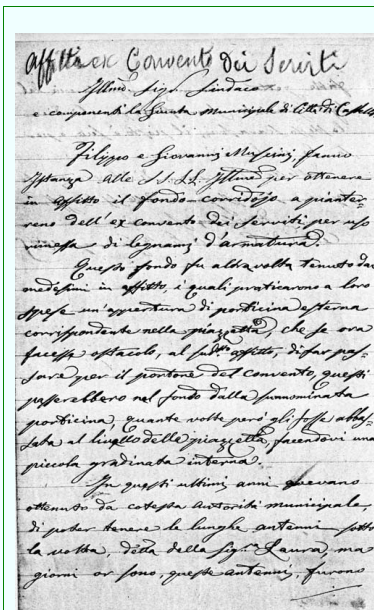 Affitto ex Convento dei Serviti
Illmo Sigr Sindaco
e componenti la Giunta Municipale di Città di Castello
Filippo e Giovanni Muscini, fanno
Istanza alle SS. LL. Illme per ottenere
in affitto il fondo-corridojo a pianter-
reno dell'ex convento dei Serviti, per uso
rimessa di legnami d'armatura.
Questo fondo fu altra volta tenuto dai
medesimi in affitto, i quali praticarono a loro
spese un'appertura di porticina esterna
corrispondente nella piazzetta, che se ora
facesse ostacolo, al sudto affitto, di far pas-
sare per il portone del Convento, questi
passerebbero nel fondo dalla sunnominata
porticina, quante volte però gli fosse abbas-
sata al livello della piazzetta, facendovi una
piccola gradinata interna.
In questi ultimi anni avevano
ottenuto da cotesta autorità municipale,
di poter tenere le lunghe antenni sotto
la volta, detta della Sigra Laura, ma
giorni or sono, queste antenni, furono